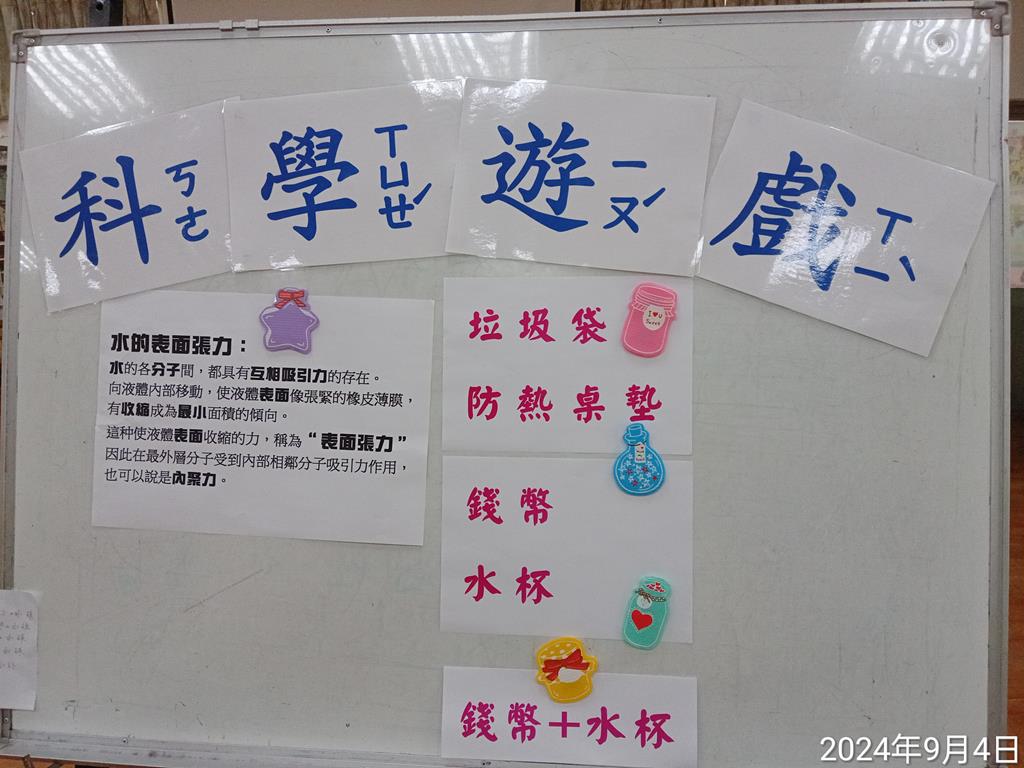 科ㄎㄜ 學ㄒㄩㄝˊ 遊ㄧㄡˊ 戲ㄒㄧˋ
水的表面張力：
水的各分子間，都具有互相吸引力的存在。
向液體內部移動，使液體表面像張緊的橡皮薄膜，
有收縮成為最小面積的傾向。
這种使液體表面收縮的力，稱為“表面張力”
因此在最外層分子受到內部相鄰分子吸引力作用，
也可以說是內聚力。
垃圾袋
防熱桌墊
錢幣
水杯
錢幣＋水杯
I♥U
Sweet
2024年9月4日